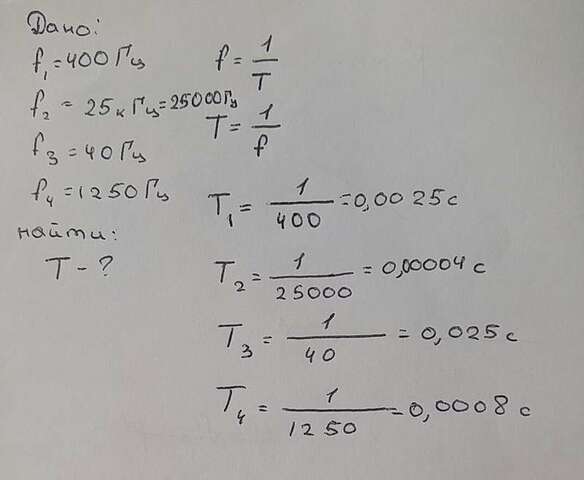 Дано:
f₁=400 Гц
f₂ = 25 кГц=25000Гц
f₃ = 40 Гц
f₄ = 1250 Гц
найти:
T - ?
f = 1/T
T = 1/f
T₁ = 1/400 = 0,0025 с
T₂ = 1/25000 = 0,00004 с
T₃ = 1/40 = 0,025 с
T₄ = 1/1250 = 0,0008 с